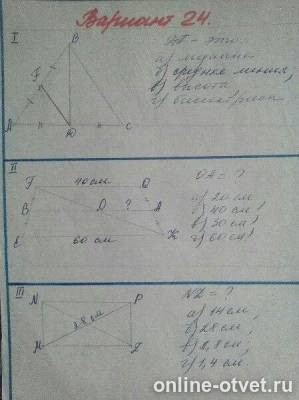 Вариант 24.
I
B
A D C
а) медиана
б) средняя линия,
в) высота
г) биссектриса
II
40 см
OA = ?
B O ? A
а) 20 см
б) 40 см,
в) 30 см,
г) 60 см,
E 60 см K
III
N P
28 см
M
NZ = ?
а) 14 см,
б) 28 см,
в) 2,8 см,
г) 1,4 см.
online-otvet.ru